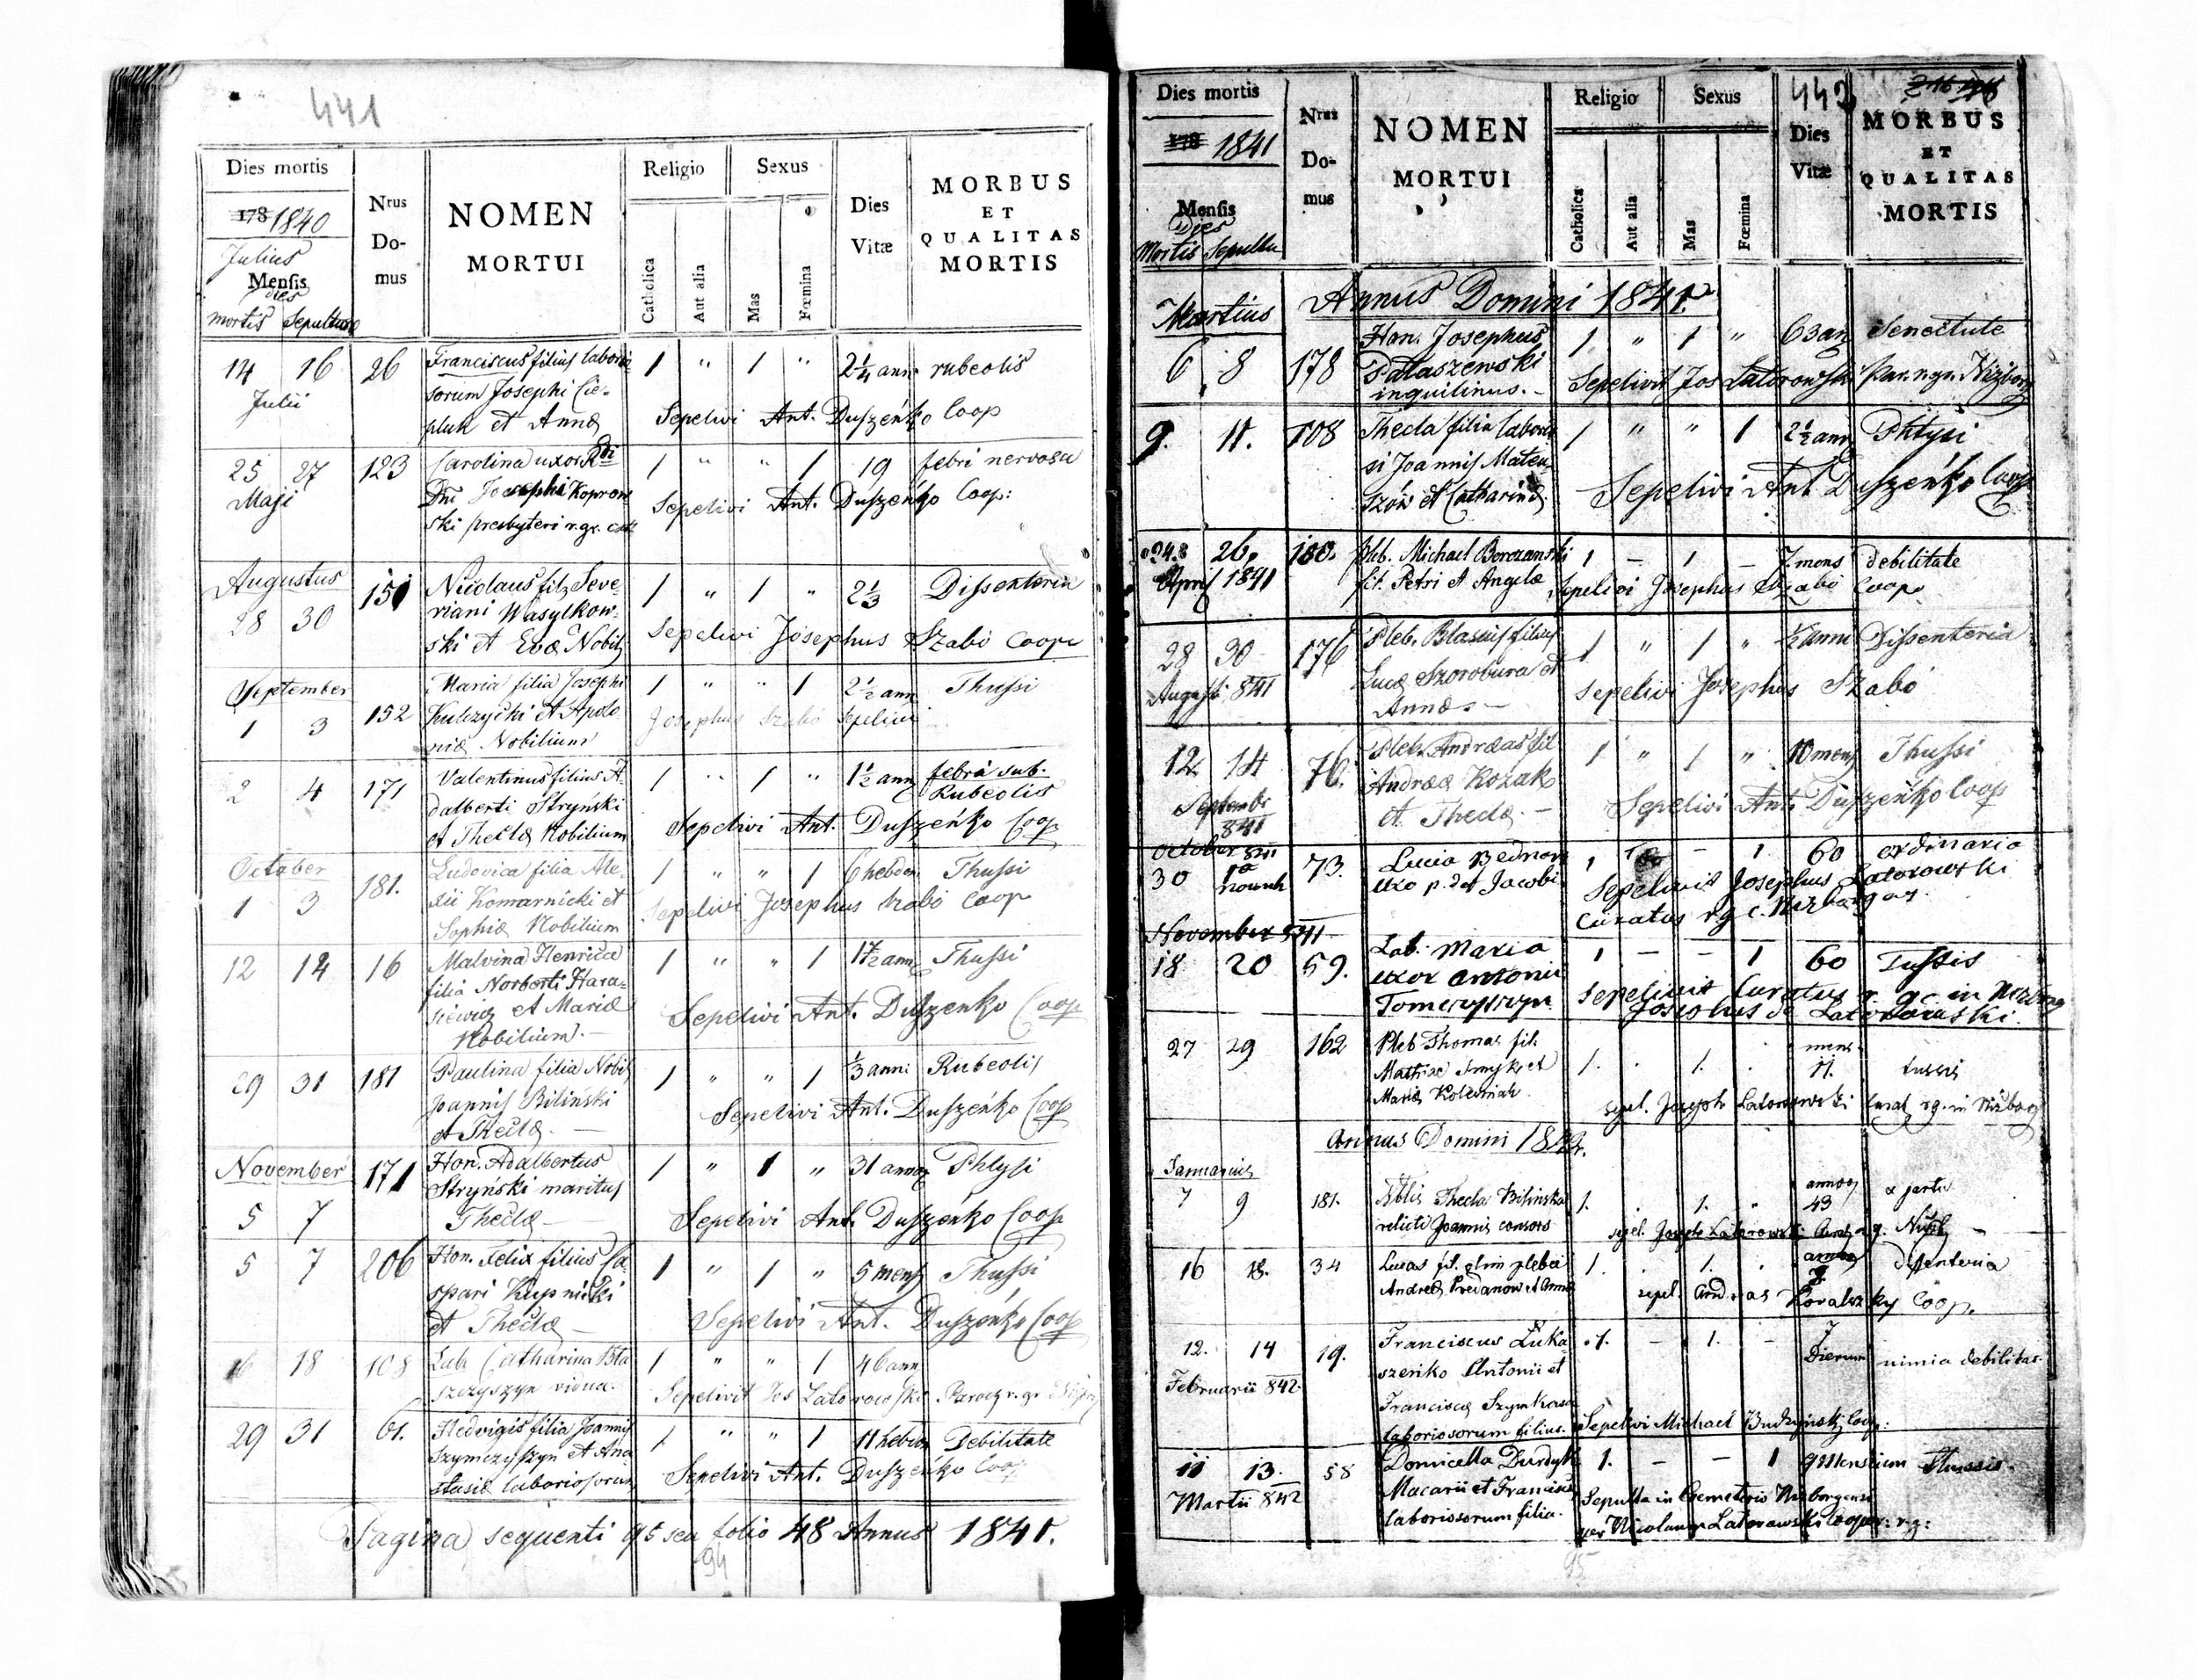 441
Dies mortis
178 1840
Julius
Mensis
Dies
mortis Sepulturæ
Nrus
Do-
mus
NOMEN
MORTUI
Religio
Catholica
Aut alia
Sexus
Mas
Fœmina
Dies
Vitæ
MORBUS
ET
QUALITAS
MORTIS
14 16 26 Franciscus filius laborio 1 " 1 " 2¼ ann: rubeolis
Julii
sorum Josephi Cie-
pluk et Annæ Sepelivi Ant. Duszeńko Coop
25 27 123 Carolina uxor Rdi 1 " " 1 19 febri nervosa
Maji
Dni Josephi Koprow
ski presbyteri r.gr. cat Sepelivi Ant. Duszeńko Coop:
Augustus
28 30 151 Nicolaus fil. Seve- 1 " 1 " 2⅓ Dissenteria
riani Wasylkow-
ski et Evæ Nobil Sepelivi Josephus Szabo Coop
September
1 3 152 Maria filia Josephi 1 " " 1 2½ ann Thussi
Kulczycki et Apolo
niæ Nobilium Josephus Szabo sepelivi
2 4 171 Valentinus filius A- 1 " 1 " 1½ ann febra sub.
Rubeolis
dalberti Stryński
et Theclæ Nobilium Sepelivi Ant. Duszeńko Coop
October
1 3 181. Ludovica filia Ale- 1 " " 1 6 hebdom Thussi
xii Komarnicki et
Sophiæ Nobilium Sepelivi Josephus Szabo Coop
12 14 16 Malvina Henrica 1 " " 1 1½ ann Thussi
filia Norberti Hara-
siewicz et Mariæ
Nobilium.- Sepelivi Ant. Duszeńko Coop
29 31 181 Paulina filia Nobil 1 " " 1 ⅓ anni Rubeolis
Joannis Biliński
et Theclæ. Sepelivi Ant. Duszeńko Coop
November
5 7 171 Hon. Adalbertus 1 " 1 " 31 annor Phtysi
Stryński maritus
Theclæ Sepelivi Ant. Duszeńko Coop
5 7 206 Hon. Felix filius Ca- 1 " 1 " 5 mens Thussi
spari Kupnicki
et Theclæ Sepelivi Ant. Duszeńko Coop
16 18 108 Lab Catharina Bła 1 " " 1 46 ann
szczyszyn vidua. Sepelivit Jos Latorowski Paroch r. gr
29 31 61. Hedvigis filia Joannis 1 " " 1 11 hebdo Debilitate
Szymczyszyn et Ana-
stasiæ laboriosorum Sepelivi Ant. Duszeńko Coop
Pagina sequenti 95 seu folio 48 Annus 1841.
94
442
Dies mortis
178 1841
Mensis
Dies
Mortis Sepultu
Nrus
Do-
mus
NOMEN
MORTUI
Religio
Catholica
Aut alia
Sexus
Mas
Fœmina
Dies
Vitæ
MORBUS
ET
QUALITAS
MORTIS
Martius Annus Domini 1841.
6 8 178 Hon. Josephus 1 " 1 " 63 an Senectute
Pałaszewski
inquilinus.- Sepelivit Jos Latorowski Par. r. gr. Niżborg
9. 11. 108 Thecla filia laborio 1 " " 1 2½ ann Phtysi
si Joannis Mateu-
szów et Catharinæ. Sepelivi Ant Duszeńko Coop
24 26. 180. pleb. Michael Borozanski 1 – 1 – 7 mens debilitate
April 1841 fil. Petri et Angelæ Sepelivi Josephus Szabo Coop
28 30 176 Pleb. Blasius filius 1 " 1 " ½ anni Dissenteria
Augusti 841 Lucæ Szorobura et
Annæ.- Sepelivi Josephus Szabó
12 14 76. Pleb. Andreas fil 1 " 1 " 10 mens Thussi
Septembr
841
Andreæ Kozak
et Theclæ.- Sepelivi Ant. Duszeńko Coop
October 841
30 73. Lucia Bednarz 1 – 1 60 ordinaria
uxo p. det Jacobi Sepelivit Josephus Latorowski
Curatus r g c.
November 841
18 20 59. Lab. Maria 1 – – 1 60 Tussis
uxor Antonii
Tomczyszyn Sepelivit Curatus r. gc. in Nizborg
Josephus de Latorowski.
27 29 162 Pleb Thomas fil. 1. . 1. . mens 11. tussis
Mathiæ Smyk et
Mariæ sepel. Joseph Latorowski Curat rg. in Niżborg
Annus Domini 1842.
Januarius
7 9 181. Nblis Thecla Bilinska 1. . 1. " annor 43 a partu
relicti Joannis consors sepel. Joseph Latorowski
16 18. 34 Lucas fil. olim plebei 1. . 1. . annor dysenteria
Andreæ et Annæ sepel. Andreas Kovalszky Coop.
12. 14 19. Franciscus Łuka 1. – 1. – 7 Dierum nimia debilitas
Februarii 842. szeńko Antonii et
Franciscæ
laboriosorum filius. Sepelivi Michael Budzyński Coop:
11 13. 58 Domicella Durdyk 1. – – 1 9 Mensium Thussis.
Martii 842 Macarii et Franciscæ
laboriosorum filia. Sepulta in Cœmeterio Nizborgensi
per Nicolaum Latorawski Cooper: r. g:
95